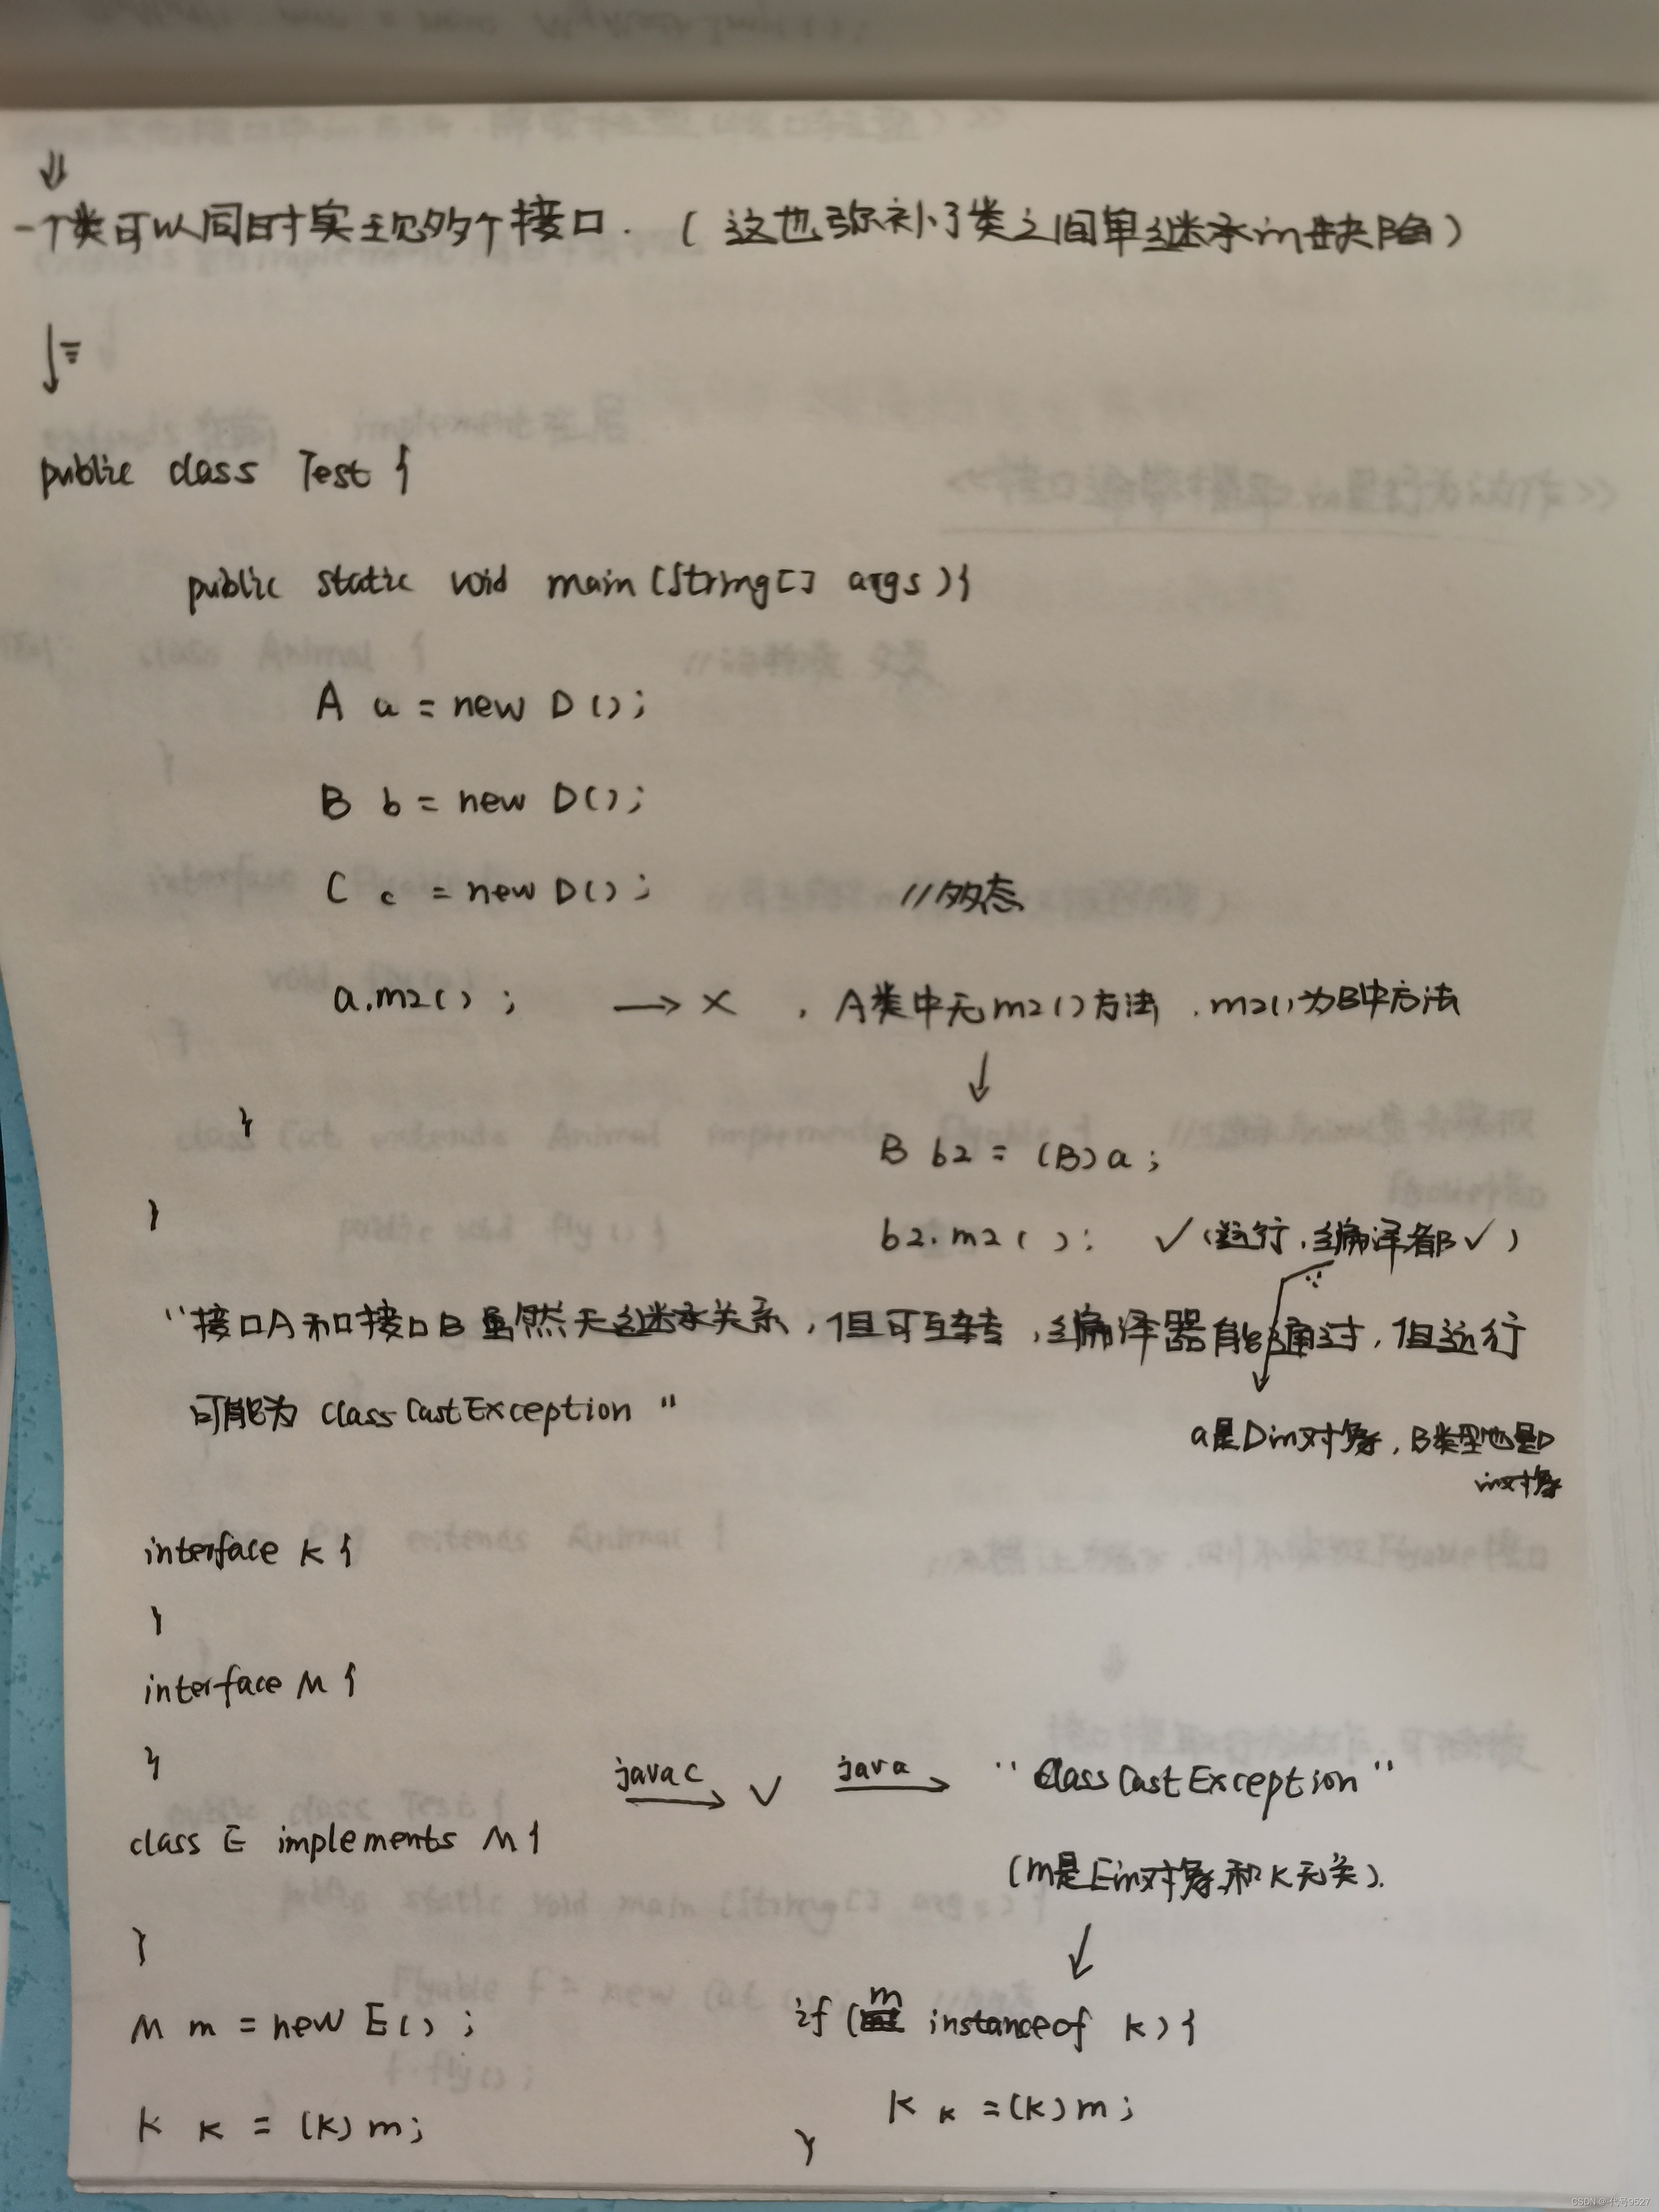 ⇓
一个类可以同时实现多个接口.（这也弥补了类之间单继承in缺陷）
public class Test {
public static void main(String[] args){
A a = new D();
B b = new D();
C c = new D(); //多态
a.m2(); → × , A类中无m2()方法 , m2()为B中方法
↓
}
B b2 = (B)a;
}
b2.m2(): ✓(运行,编译都✓)
"接口A和接口B虽然无继承关系,但可互转,编译器能通过,但运行
可能为 classCastException"
a是Din对象, B类型也是D
in对象
interface K {
}
interface M {
}
javac → ✓ java → "classCastException"
class E implements M {
(m是Ein对象,和K无关).
}
↓
M m = new E();
if (m instanceof K) {
K k = (K)m;
K k = (K)m;
}
CSDN @代号9527